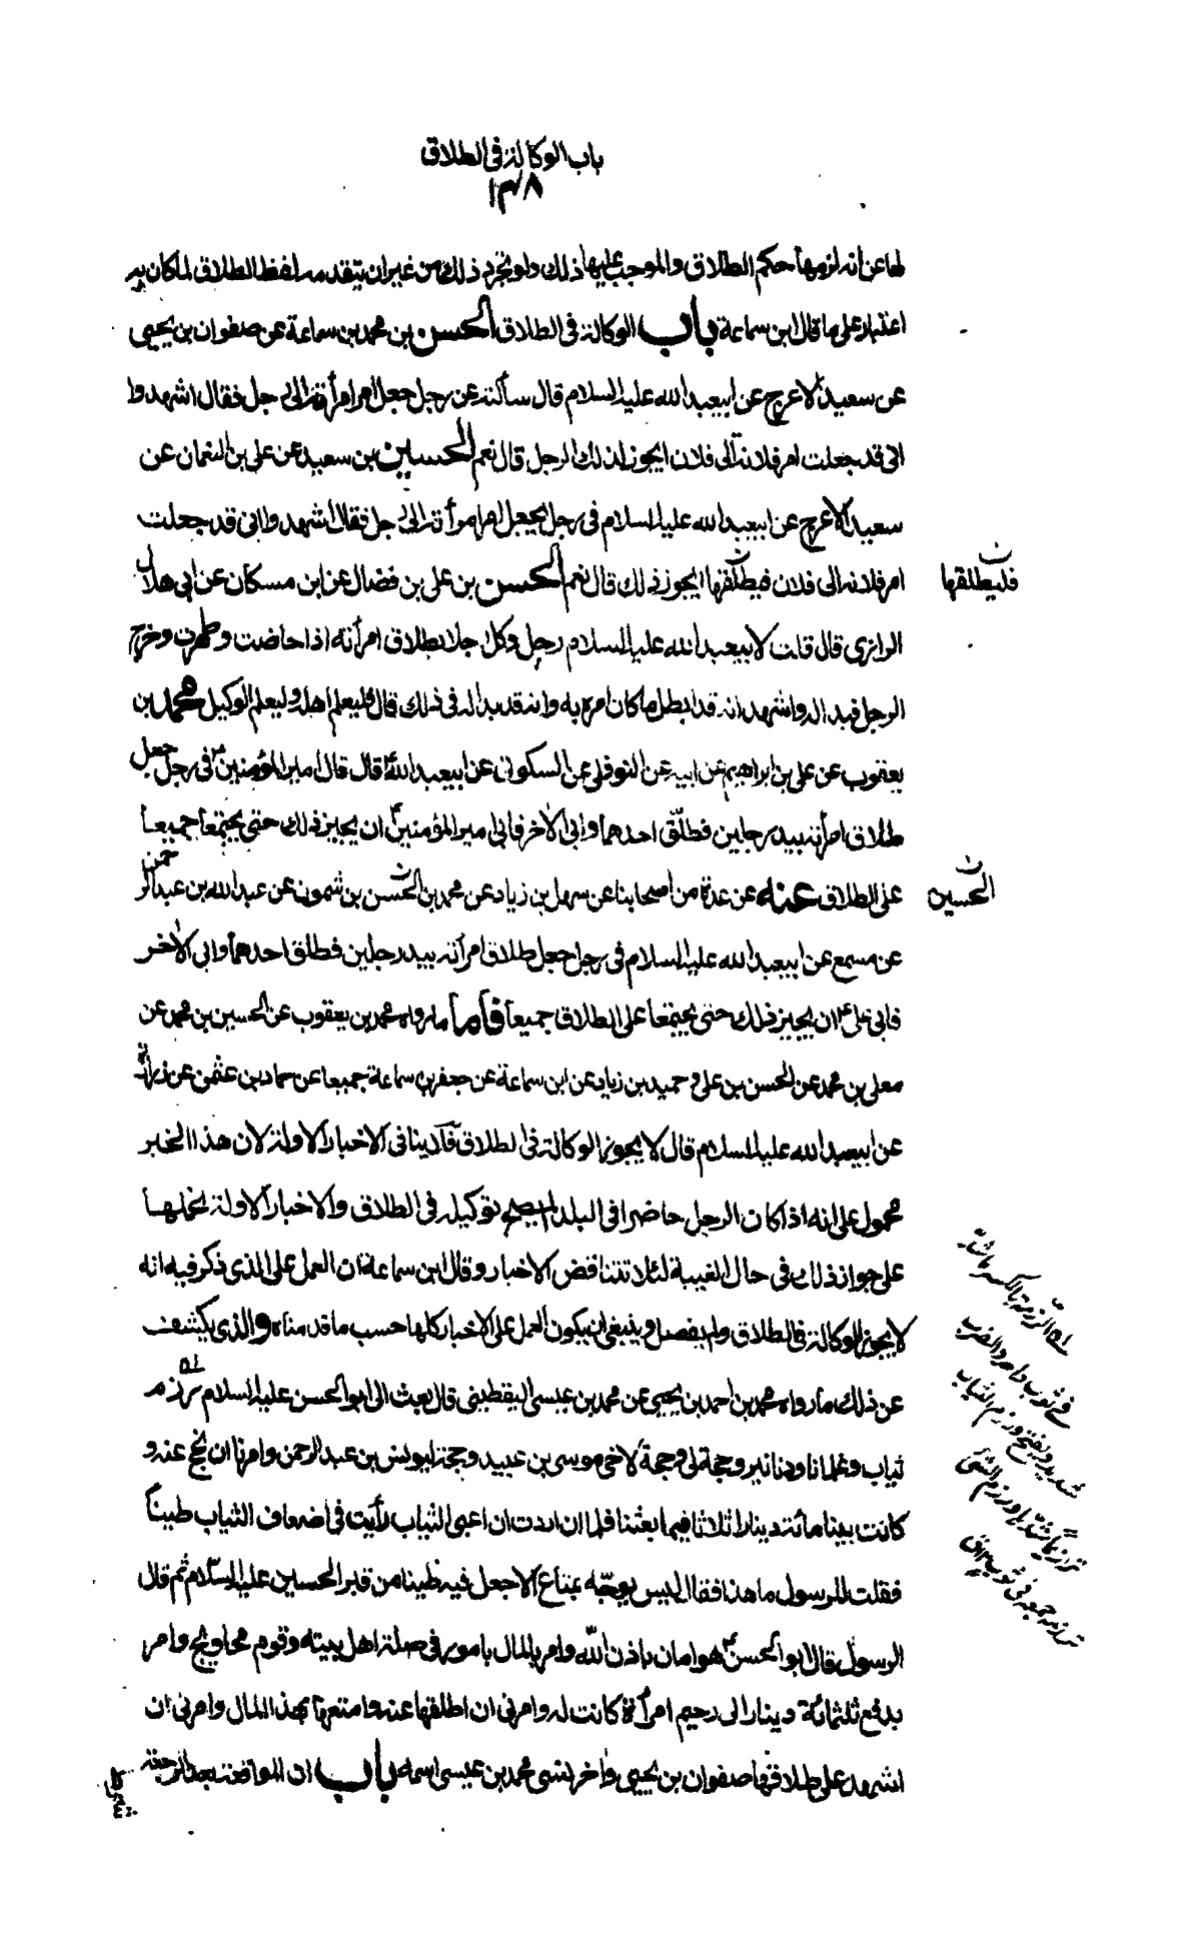 باب الوكالة في الطلاق
١٣٨
لها عن انه لزمها حكم الطلاق والموجب عليها ذلك ولو تجرد ذلك من غير ان يتقدمه لفظ الطلاق لما كان به
اعتبار على ما قال ابن سماعة باب الوكالة في الطلاق الحسن بن محمد بن سماعة عن صفوان بن يحيى
عن سعيد الاعرج عن ابيعبد الله عليه السلام قال سألته عن رجل جعل امر امرأته الى رجل فقال اشهدوا
اني قد جعلت امر فلانة الى فلان ايجوز ذلك للرجل قال نعم الحسين بن سعيد عن علي بن النعمان عن
سعيد الاعرج عن ابيعبد الله عليه السلام في رجل يجعل امر امرأته الى رجل فقال اشهدوا اني قد جعلت
امر فلانه الى فلان فيطلقها ايجوز ذلك قال نعم الحسن بن علي بن فضال عن ابن مسكان عن ابي هلال
فليطلقها
الرازي قال قلت لابيعبد الله عليه السلام رجل وكل رجلا بطلاق امرأته اذا حاضت وطهرت وخرج
الرجل فبدا له واشهد انه قد ابطل ما كان امره به وانه قد بدا له في ذلك قال فليعلم اهله وليعلم الوكيل محمد بن
يعقوب عن علي بن ابراهيم عن ابيه عن النوفلي عن السكوني عن ابيعبد الله ع قال قال امير المؤمنين ع في رجل جعل
طلاق امرأته بيد رجلين فطلّق احدهما وابى الآخر فابى امير المؤمنين ع ان يجيز ذلك حتى يجتمعا جميعا
على الطلاق عنه عن عدة من اصحابنا عن سهل بن زياد عن محمد بن الحسن بن شمون عن عبد الله بن عبد الرحمن
الحسين
عن مسمع عن ابيعبد الله عليه السلام في رجل جعل طلاق امرأته بيد رجلين فطلق احدهما وابى الآخر
فابى علي ع ان يجيز ذلك حتى يجتمعا على الطلاق جميعا فأما ما رواه محمد بن يعقوب عن الحسين بن محمد عن
معلى بن محمد عن الحسن بن علي وحميد بن زياد عن ابن سماعة عن جعفر بن سماعة جميعا عن حماد بن عثمن عن زرارة
عن ابيعبد الله عليه السلام قال لا يجوز الوكالة في الطلاق فلا ينافي الاخبار الاولة لان هذا الخبر
محمول على انه اذا كان الرجل حاضرا في البلد لم يصح توكيله في الطلاق والاخبار الاولة نحملها
على جواز ذلك في حال الغيبة لئلا تتناقض الاخبار وقال ابن سماعة ان العمل على الذي ذكر فيه انه
لا يجوز الوكالة في الطلاق ولم يفصل وينبغي ان يكون العمل على الاخبار كلها حسب ما قدمناه والذي يكشف
عن ذلك ما رواه محمد بن احمد بن يحيى عن محمد بن عيسى اليقطيني قال بعث الي ابو الحسن عليه السلام رزم
ثياب وغلمانا ودنانير وحجة لي وحجة لاخي موسى بن عبيد وحجة ليونس بن عبد الرحمن وامرنا ان نحج عنه و
كانت بيننا مائة دينار اثلاثا فيما بيننا فلما ان اردت ان اعبي الثياب رأيت في اضعاف الثياب طينا
فقلت للرسول ما هذا فقال ليس يوجّه بمتاع الا جعل فيه طينا من قبر الحسين عليه السلام ثم قال
الرسول قال ابو الحسن ع هو امان باذن الله وامر بالمال بامور في صلة اهل بيته وقوم محاويج وامر
بدفع ثلثمائة دينار الى رحيم امرأة كانت له وامرني ان اطلقها عنه وامتعها بهذا المال وامرني ان
اشهد على طلاقها صفوان بن يحيى وآخر نسي محمد بن عيسى اسمه باب ان المواقعة بعد الرجعة